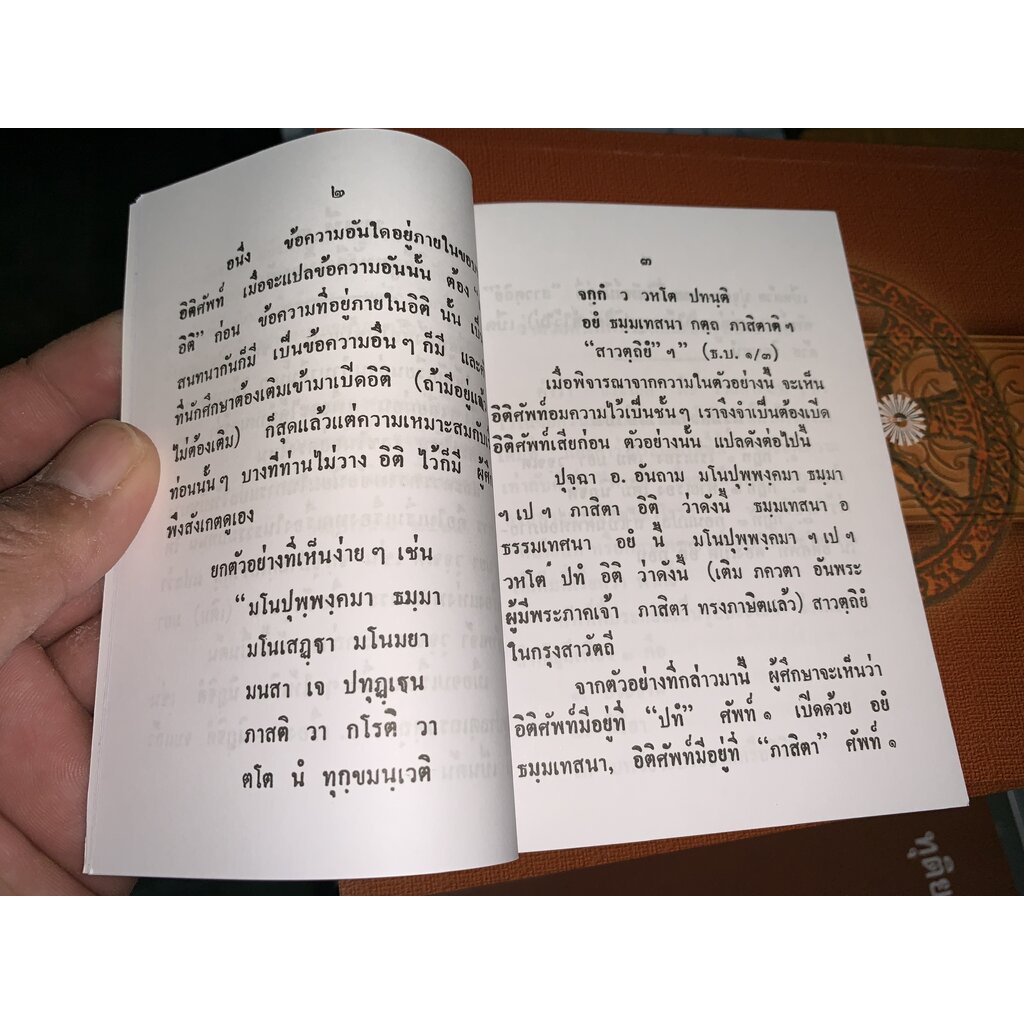 ๒
อนึ่ง ข้อความอันใดอยู่ภายในขอบ
อิติศัพท์ เมื่อจะแปลข้อความอันนั้น ต้อง
อิติ” ก่อน ข้อความที่อยู่ภายในอิติ นั้น
สนทนากันก็มี เป็นข้อความอื่นๆ ก็มี
ที่นักศึกษาต้องเติมเข้ามาเปิดอิติ (ถ้ามีอยู่แล้ว
ไม่ต้องเติม) ก็สุดแล้วแต่ความเหมาะสมกับ
ท่อนนั้นๆ บางทีท่านไม่วาง อิติ ไว้ก็มี
พึงสังเกตดูเอง
ยกตัวอย่างที่เห็นง่ายๆ เช่น
“มโนปุพฺพงฺคมา ธมฺมา
มโนเสฏฺฐา มโนมยา
มนสา เจ ปทุฏฺเฐน
ภาสติ วา กโรติ วา
ตโต นํ ทุกฺขมนฺเวติ
๓
จกฺกํ ว วหโต ปทนฺติ
อยํ ธมฺมเทสนา กตฺถ ภาสิตาติ ฯ
“สาวตฺถิยํ” ฯ (ธ.บ. ๑/๓)
เมื่อพิจารณาจากความในตัวอย่างนี้ จะเห็น
อิติศัพท์อมความไว้เป็นชั้นๆ เราจึงจำเป็นต้องเปิด
อิติศัพท์เสียก่อน ตัวอย่างนั้น แปลดังต่อไปนี้
ปุจฺฉา อ. อันถาม มโนปุพฺพงฺคมา ธมฺมา
ฯ เป ฯ ภาสิตา อิติ ว่าดังนี้ ธมฺมเทสนา อ
ธรรมเทศนา อยํ นี้ มโนปุพฺพงฺคมา ฯ เป ฯ
วหโต ปทํ อิติ ว่าดังนี้ (เติม ภควตา อันพระ
ผู้มีพระภาคเจ้า ภาสิตา ทรงภาษิตแล้ว) สาวตฺถิยํ
ในกรุงสาวัตถี
จากตัวอย่างที่กล่าวมานี้ ผู้ศึกษาจะเห็นว่า
อิติศัพท์มีอยู่ที่ “ปทํ” ศัพท์ ๑ เปิดด้วย อยํ
ธมฺมเทสนา, อิติศัพท์มีอยู่ที่ “ภาสิตา” ศัพท์ ๑